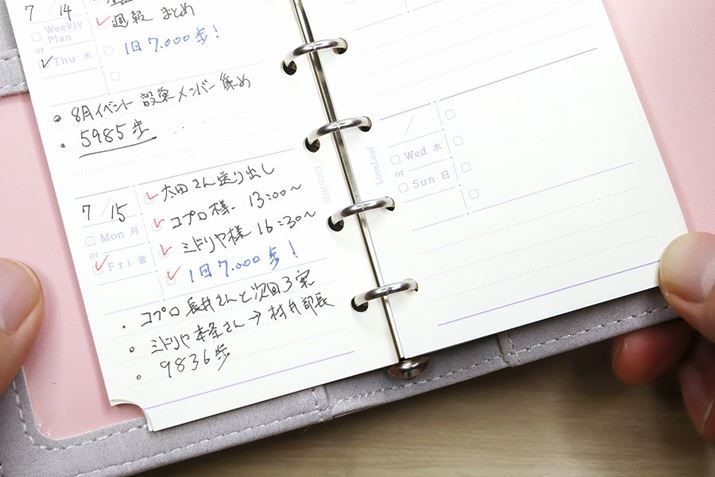 7/14
週報 まとめ
Weekly
or
Plan
Thu 木
1日7.000歩!
・8月イベント 設営メンバー集め
・5985歩
7/15
太田さん送り出し
コプロ様 13:00〜
Mon 月
or
Fri 金
ミドリヤ様 16:30〜
1日7.000歩!
・コプロ 長井さんと次回3案
・ミドリヤ 本条さん→村井部長
・9836歩
/
Wed 水
or
Sun 日